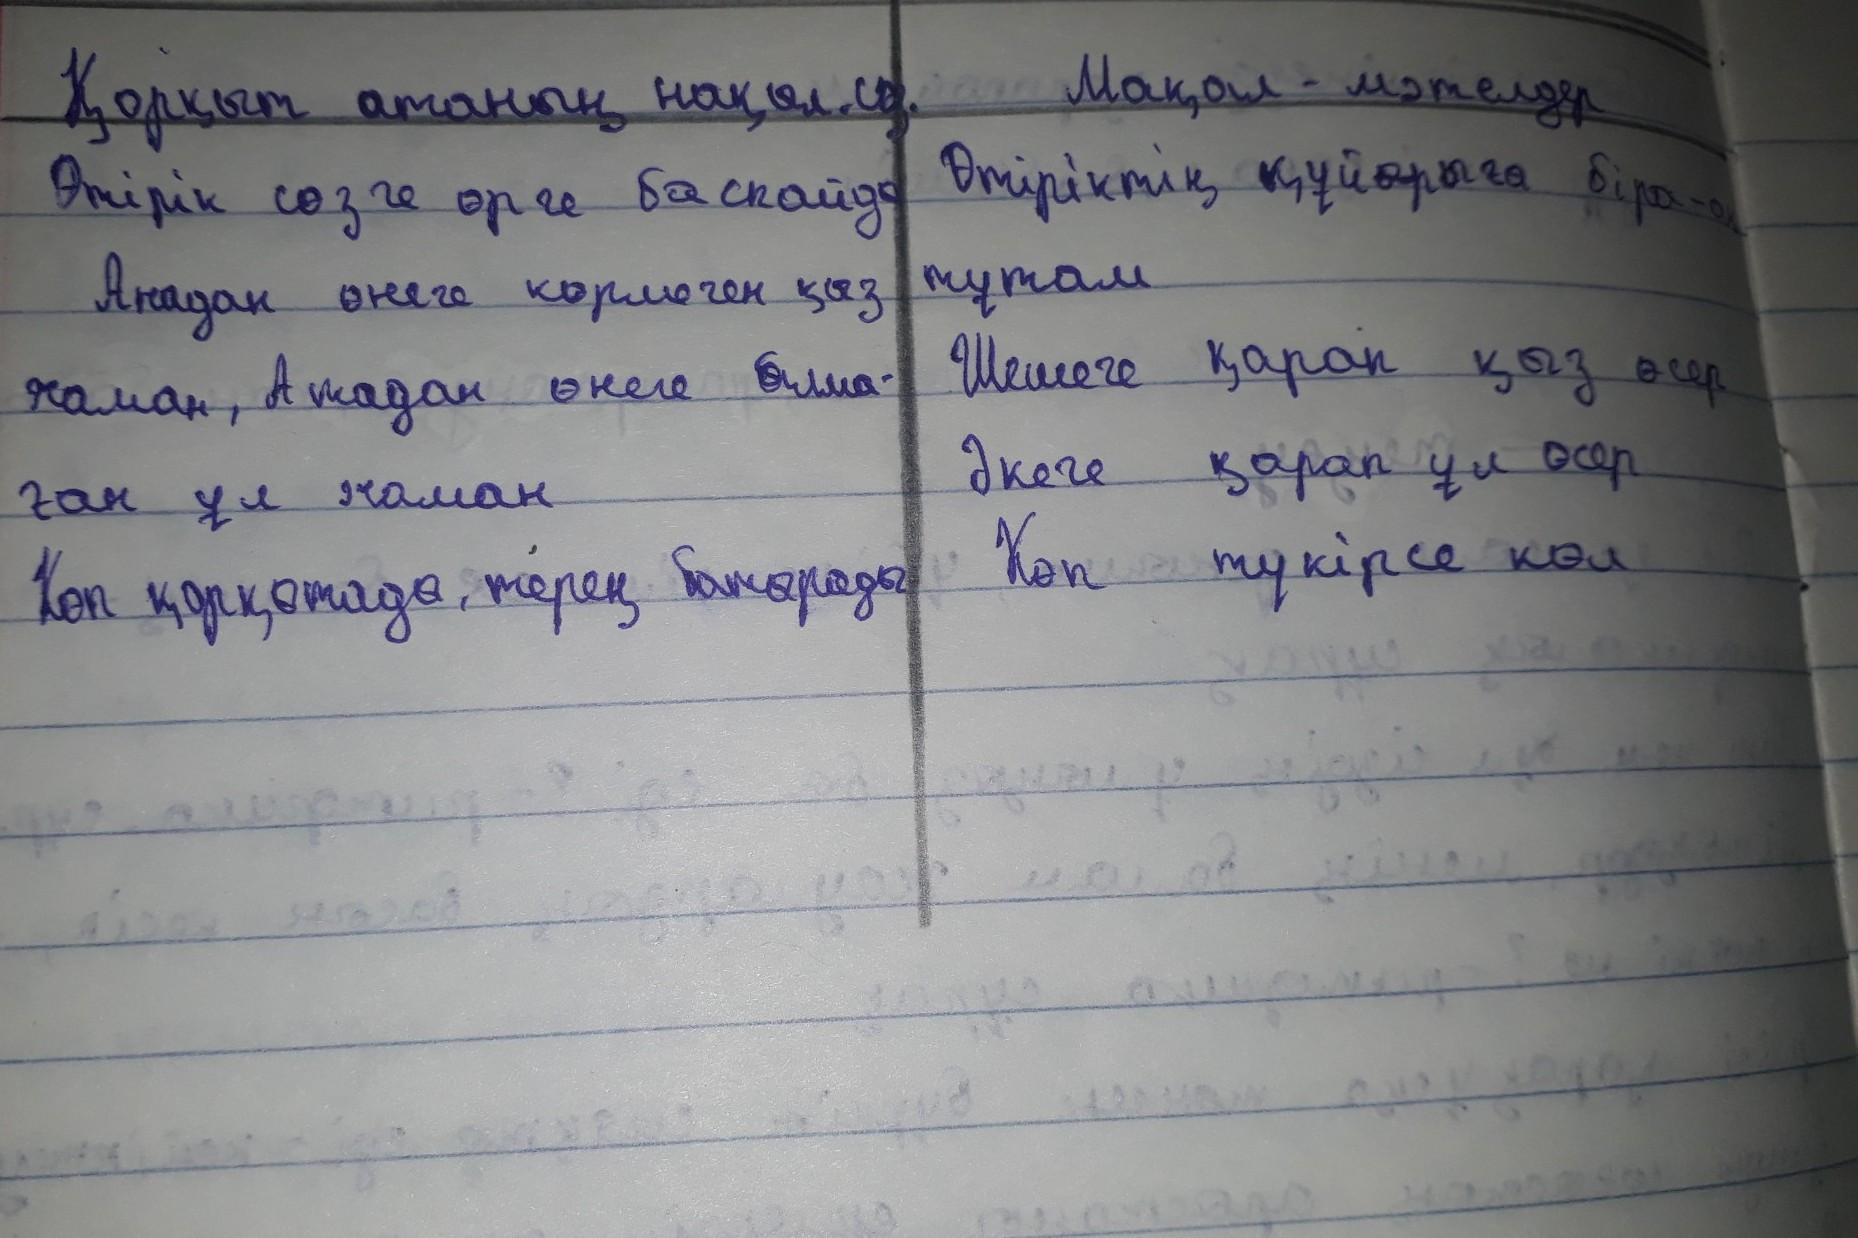 Қорқыт атаның нақыл.сө.
Өтірік сөзге өрге баспайды
Анадан өнеге көрмеген қыз
жаман, Атадан өнеге алма-
ған ұл жаман
Көп қорқытады, терең батырады
Мақал - мәтелдер
Өтіріктің құйрығы бірақ-ақ
тұтам
Шешеге қарап қыз өсер
Әкеге қарап ұл өсер
Көп түкірсе көл